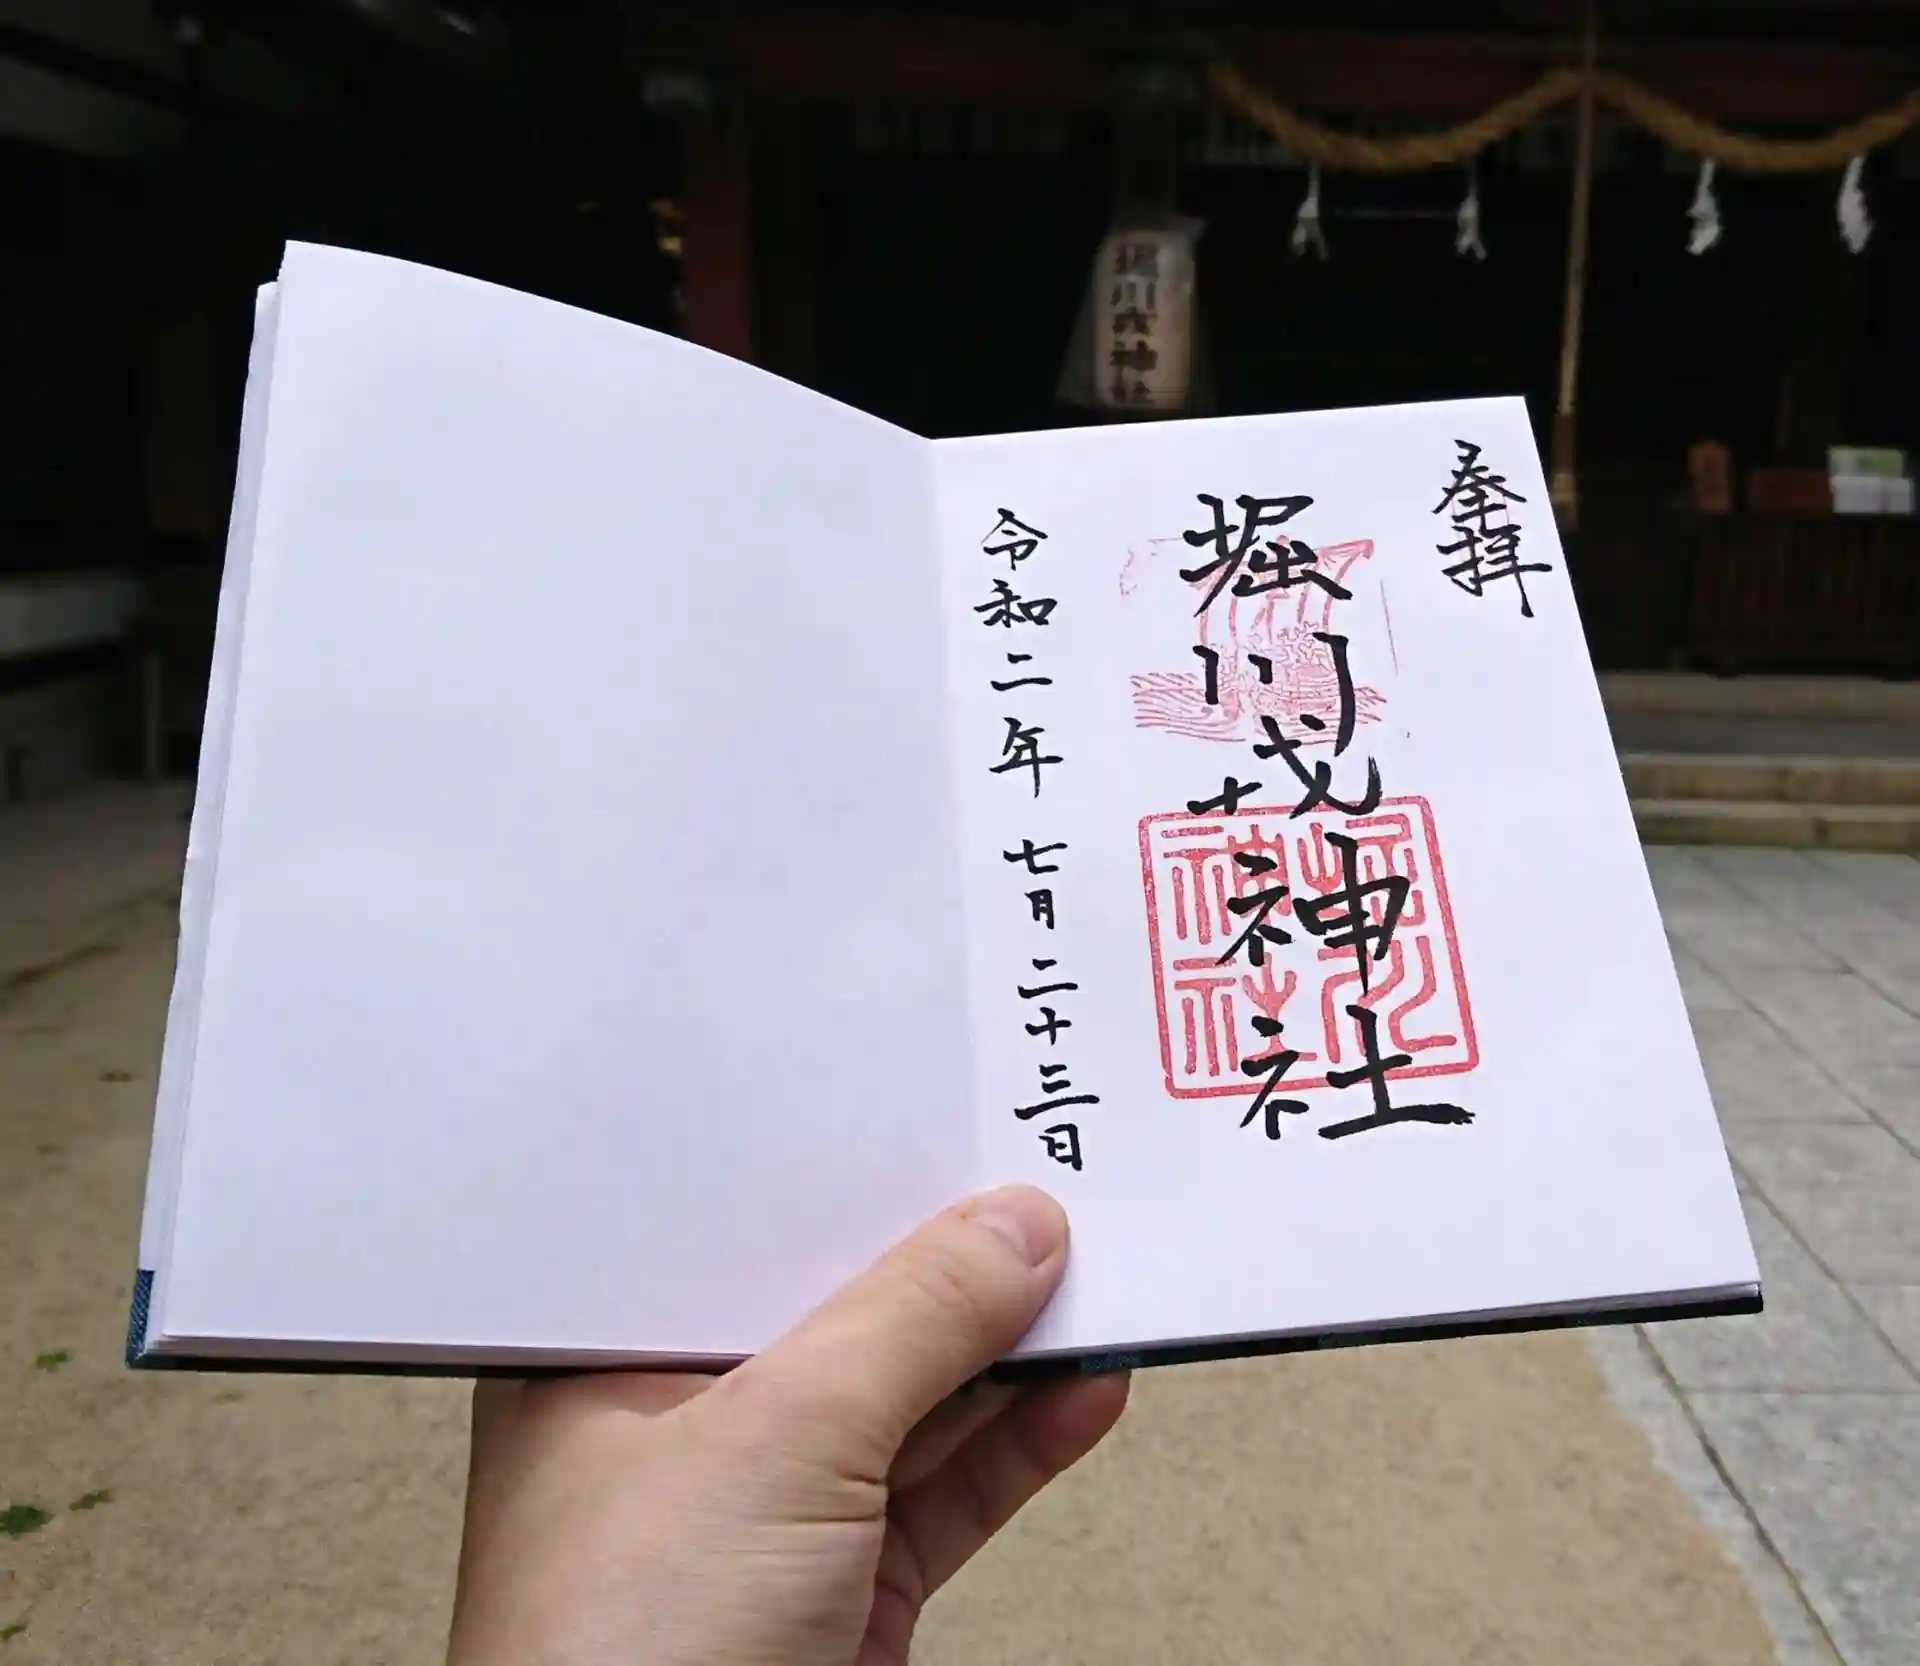 堀川戎神社
奉拝
堀川戎神社
堀川
神社
令和二年七月二十三日